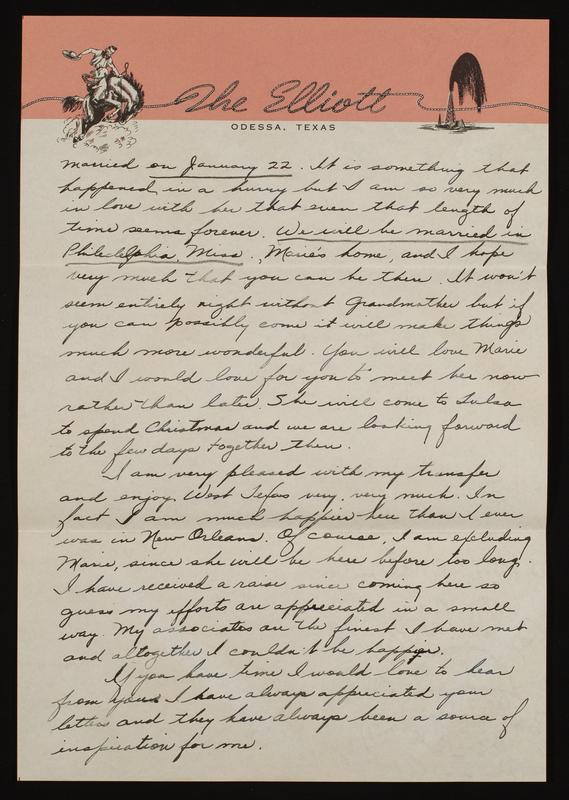 The Elliott
ODESSA, TEXAS
married on January 22. It is something that
happened in a hurry but I am so very much
in love with her that even that length of
time seems forever. We will be married in
Philadelphia, Miss., Marie's home, and I hope
very much that you can be there. It won't
seem entirely right without Grandmother but if
you can possibly come it will make things
much more wonderful. You will love Marie
and I would love for you to meet her now
rather than later. She will come to Tulsa
to spend Christmas and we are looking forward
to the few days together then.
I am very pleased with my transfer
and enjoy West Texas very, very much. In
fact I am much happier here than I ever
was in New Orleans. Of course, I am excluding
Marie, since she will be here before too long.
I have received a raise since coming here so
guess my efforts are appreciated in a small
way. My associates are the finest I have met
and altogether I couldn't be happier.
If you have time I would love to hear
from you. I have always appreciated your
letters and they have always been a source of
inspiration for me.